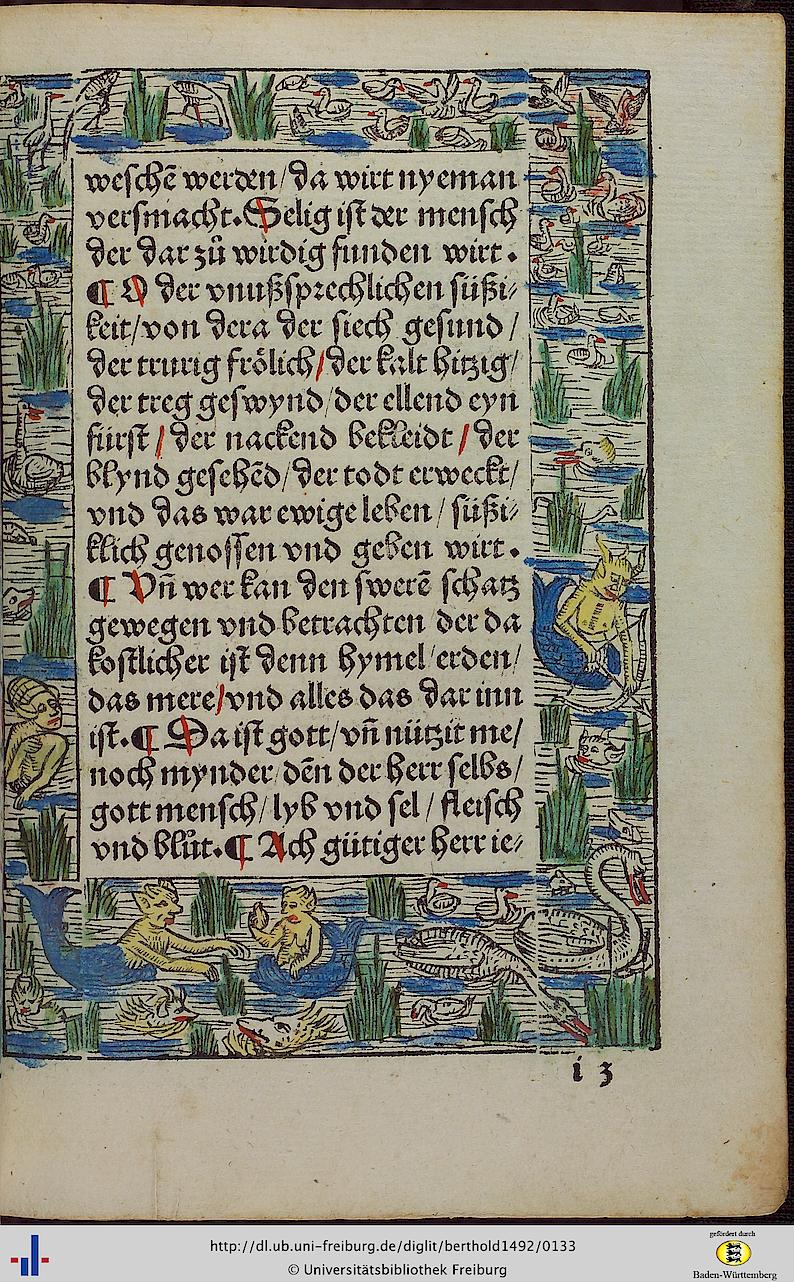 weschē werden/da wirt nyeman
versmacht. Selig ist der mensch
der dar zů wirdig funden wirt.
¶ O der vnußsprechlichen süßi⸗
keit/von dera der siech gesund/
der trurig frölich/der kalt hitzig/
der treg geswynd/der ellend eyn
fürst/der nackend bekleidt/der
blynd gesehēd/der todt erweckt/
vnd das war ewige leben/süßi⸗
klich genossen vnd geben wirt.
¶ Vn̄ wer kan den swerē schatz
gewegen vnd betrachten der da
kostlicher ist denn hymel/erden/
das mere/vnd alles das dar inn
ist. ¶ Da ist gott/vn̄ nützit me/
noch mynder/dēn der herr selbs/
gott mensch/lyb vnd sel/fleisch
vnd blůt. ¶ Ach gütiger herr ie⸗
i 3
http://dl.ub.uni-freiburg.de/diglit/berthold1492/0133
© Universitätsbibliothek Freiburg
gefördert durch
Baden-Württemberg